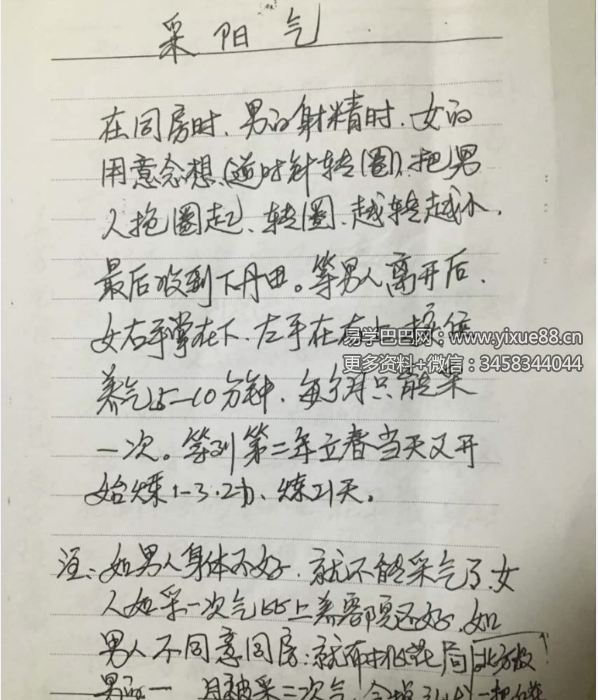 采阳气
在同房时、男的射精时、女的
用意念想(逆时针转圈)、把男
人抱圈起、转圈、越转越小、
最后收到下丹田。等男人离开后、
女右手掌在下、左手在右上
易学巴巴网：www.yixue88.cn
更多资料+微信：3458344044
养气5—10分钟，每个月只能采
一次。等到第二年立春当天又开
始炼1-3.2功、炼21天。
注：如男人身体不好、就不能采气了、女
人如采一次气比上美容院还好、如
男人不同意同房、就布桃花局
男 一 月被采二次气